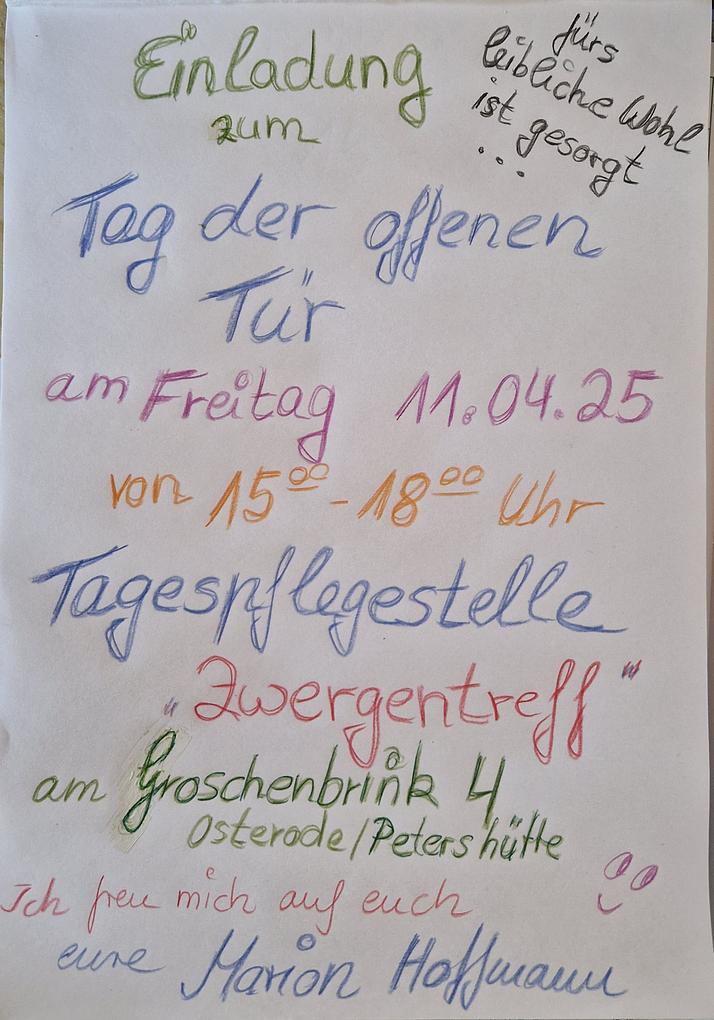 Einladung
zum
fürs
leibliche Wohl
ist gesorgt
...
Tag der offenen
Tür
am Freitag 11.04.25
von 15⁰⁰ - 18⁰⁰ Uhr
Tagespflegestelle
„Zwergentreff"
am Groschenbrink 4
Osterode/Petershütte
Ich freu mich auf euch
eure Marion Hoffmann